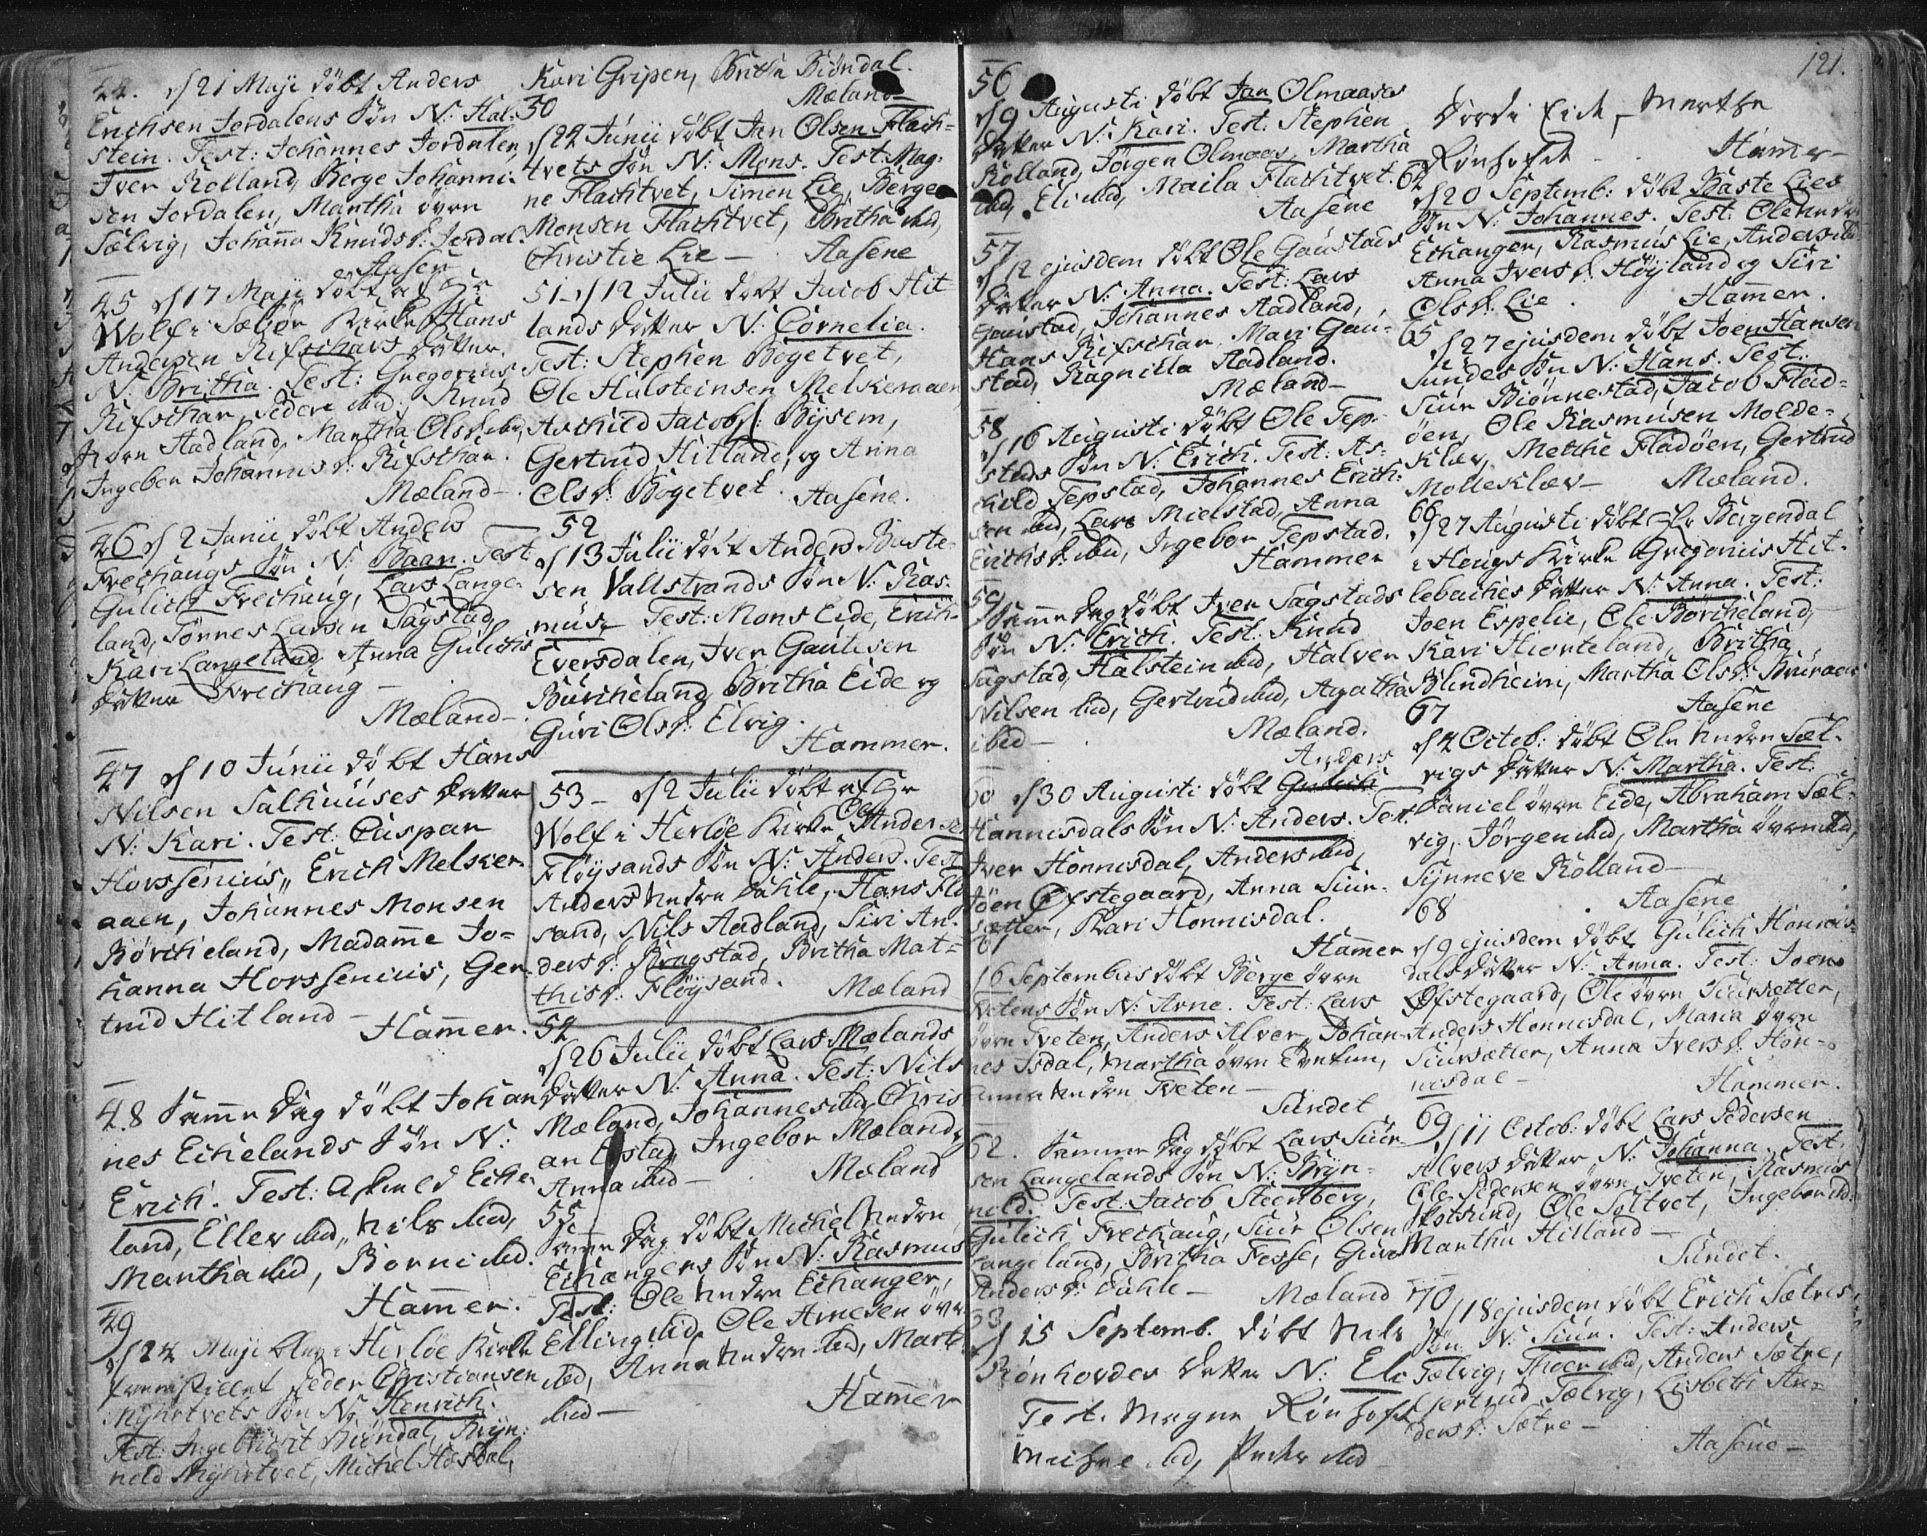 44. d/21 Maji döbt Anders
Erichsen Jordalens Sön N: Hal-
stein. Test: Johannes Jordalen,
Iver Rolland, Berge Johanni-
sen Jordalen, Martha övre
Sælvig, Johanna Knudsd: Jordal.
Aasen
45 d/17 Maji döbt af Hr
Wolf i Sæbøe Kirke Hans
Andersen Rifschars Datter
N: Britha. Test: Gregorius
Rifschar, Peder ibid, Knud
Aadland, Martha Olsd: ibid,
Ingebor Johannisd: Rifschar.
Mæland
46 d/2 Junii döbt Anders
Frechaugs Sön N: Baar. Test:
Gulich Frechaug, Lars Lange-
land, Tønnes Larsen Sagstad,
Kari Langeland, Anna Gulichs
Datter Frechaug
Mæland
47 d/10 Junii döbt Hans
Nilsen Salhuuses Datter
N: Kari. Test: Cuspar
Horssenius, Erich Melker-
aaen, Johannes Monsen
Børcheland, Madame Jo-
hanna Horssenius, Ger-
trud Hitland
Hammer.
48 Samme Dag döbt Johan-
nes Eichelands Sön N:
Erich. Test: Eiche-
land, Eller ibid, Nils ibid,
Martha ibid, Borni ibid.
Hammer.
49
d/24 Maji blev i Herløe Kirke
fremstillet Peder Christiansen
Myhrtvets Sön N: Henrich.
Test: Ingebricht Biöndal, Bryn-
nild Myhrtvet, Michel Hosdal,
Kari Gripen, Britha Biöndal.
Mæland
50
d/24 Junii döbt Jan Olsen Flach-
tvets Sön N: Mons. Test: Mag-
ne Flachtvet, Simen Lie, Berge
Monsen Flachtvet, Britha ibid,
Christie Lie
Aasene
51 d/12 Julii döbt Jacob Hit-
lands Datter N: Cornelia.
Test: Stephen Bogetvet,
Ole Halsteinsen Melkeraaen,
Aschild Jacobs: Bysem,
Gertrud Hitland, og Anna
Olsd: Bogetvet.
Aasene.
52
d/13 Julii döbt Anders Baste-
sen Vallstrands Sön N: Ras-
mus. Test: Mons Eide, Erich
Eversdalen, Iver Gautesen
Burcheland, Britha Eide og
Guri Olsd: Elvig.
Hammer.
53 d/2 Julii döbt af Hr
Wolf i Herløe Kirke Ole Andersen
Fløysands Sön N: Anders. Test:
Anders Nedre Dahle, Hans Flø-
sand, Nils Aadland, Siri An-
dersd: Bragstad, Britha Mat-
thisd: Fløysand.
Mæland
54
d/26 Julii döbt Lars Mælands
Datter N: Anna. Test: Nils
Mæland, Johannes ibid, Chris-
Ingebor Mæland,
Anna ibid
Mæland
55
Samme Dag döbt Michel Nedre
Echangers Sön N: Rasmus
Test: Ole Nedre Echanger,
Elling ibid, Ole Arnesen övre
ibid, Anna Nedre ibid, Marte
ibid
Hammer
121.
56
d/9 Augusti döbt Jan Olmaases
Datter N: Kari. Test: Stephen
Rolland, Jörgen Olmaas, Martha
ibid, Eli ibid, Maila Flachtvet.
Aasene
57
d/12 ejusdem döbt Ole Gaustads
Datter N: Anna. Test: Lars
Gaustad, Johannes Aadland,
Haas Rifschar, Mari Gau-
stad, Ragnilla Aadland.
Mæland
58
d/16 Augusti döbt Ole Tep-
stads Sön N: Erich. Test: As-
child Tepstad, Johannes Erich-
sen ibid, Lars Mielstad, Anna
Erichsd: ibid, Ingebor Tepstad.
Hammer
59
Samme Dag döbt Iver Sagstads
Sön N: Erich. Test: Knud
Sagstad, Halstein ibid, Halver
Nilsen ibid, Gertrud ibid, Agatha
ibid
Mæland.
Anders
60 d/30 Augusti döbt
Hannisdals Sön N: Anders. Test:
Iver Honnisdal, Anders ibid,
Jöen Øfstegaard, Anna Siur-
sætter, Kari Honnisdal.
Hammer
61
16 Septembris döbt Berge övre
Tvetens Sön N: Arne. Test: Lars
övre Tveten, Anders Alver, Johan-
nes Isdal, Martha övre Tveten,
Anna Nedre Tveten
Sundet
62. Samme Dag döbt Lars Siur-
sen Langelands Sön N: Bryn-
nild. Test: Jacob Steenberg,
Gulich Frechaug, Siur Olsen
Langeland, Britha Fosse, Guri
Andersd: Dahle
Mæland
63
d/15 Septemb. döbt Nils
Rönhovdes Datter N: Eli
Test. Magne Rönhovd
Michel ibid, Peder ibid
Dorde Eide, Merthe
Rönhovd
Hamer
64
d/20 Septemb: döbt Baste Lies
Sön N: Johannes. Test: Ole Nedre
Echanger, Rasmus Lie, Anders ibid
Anna Iversd: Höyland og Siri
Olsd: Lie.
Hammer.
65
d/27 ejusdem döbt Joen Hansen
Sundes Sön N: Hans. Test:
Siur Biönnestad, Jacob Flad-
öen, Ole Rasmusen Molde-
klæv, Metthe Fladöen, Gertrud
Molleklæv
Mæland.
66
d/27 Augusti döbt Hr Bergendal
i Hougs Kirke Gregorius Hit-
lebaches Datter N: Anna. Test:
Joen Espelie, Ole Börcheland,
Kari Hiorteland, Britha
Blindheim, Martha Olsd: Bruraas
Aasene
67
d/4 Octob: döbt Ole Nedre Sæl-
vigs Datter N: Martha. Test:
Daniel övre Eide, Abraham Sæl-
vig, Jörgen ibid, Martha övre ibid,
Synneve Rolland
Aasene
68
d/9 ejusdem döbt Gulich Honnis-
dals Datter N: Anna. Test: Joen
Øfstegaard, Ole övre Siursetter,
Anders Honnisdal, Maria övre
Siursætter, Anna Iversd: Hon-
nisdal
Hammer.
69
d/11 Octob: döbt Lars Pedersen
Alvers Datter N: Johanna. Test:
Ole Pedersen övre Tveten, Rasmus
Ole Soltvet, Ingebor ibid.
Martha Hilland
Sundet.
70
d/18 ejusdem döbt Erich Sætres
Sön N: Siur. Test: Anders
Sælvig, Thoer ibid, Anders Sætre,
Gertrud Sælvig, Lisbeth An-
dersd: Sætre
Aasene